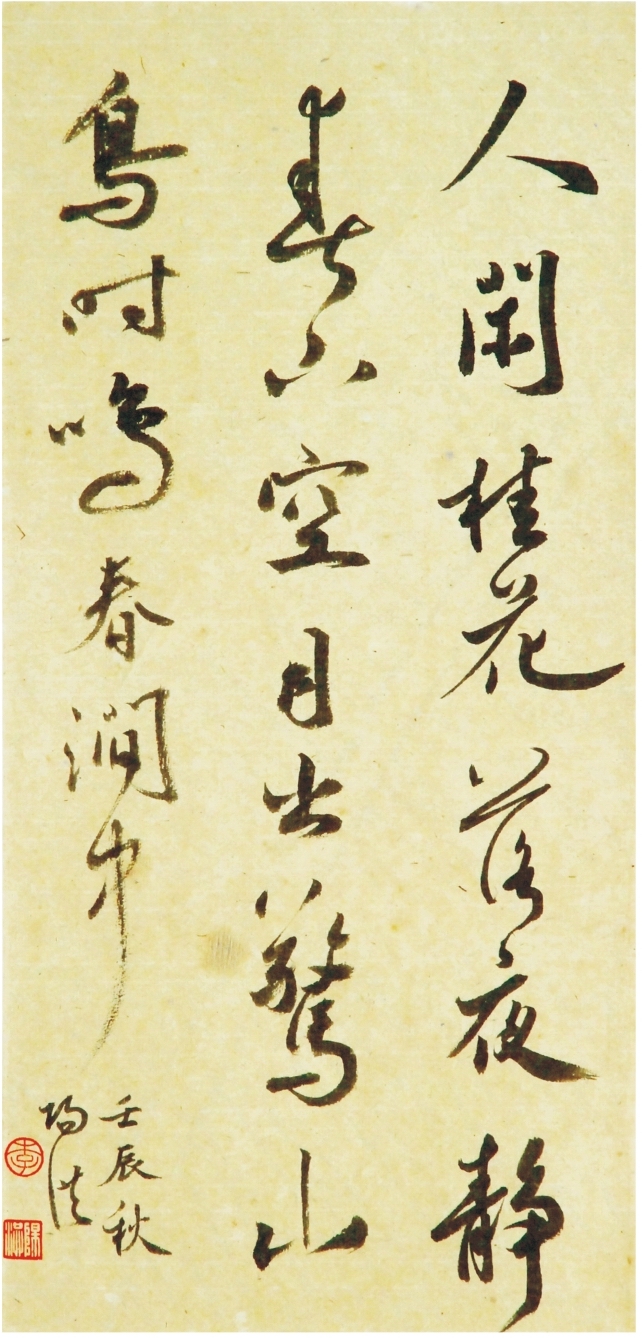 人闲桂花落夜静
春山空月出驚山
鳥时鳴春澗中
壬辰秋